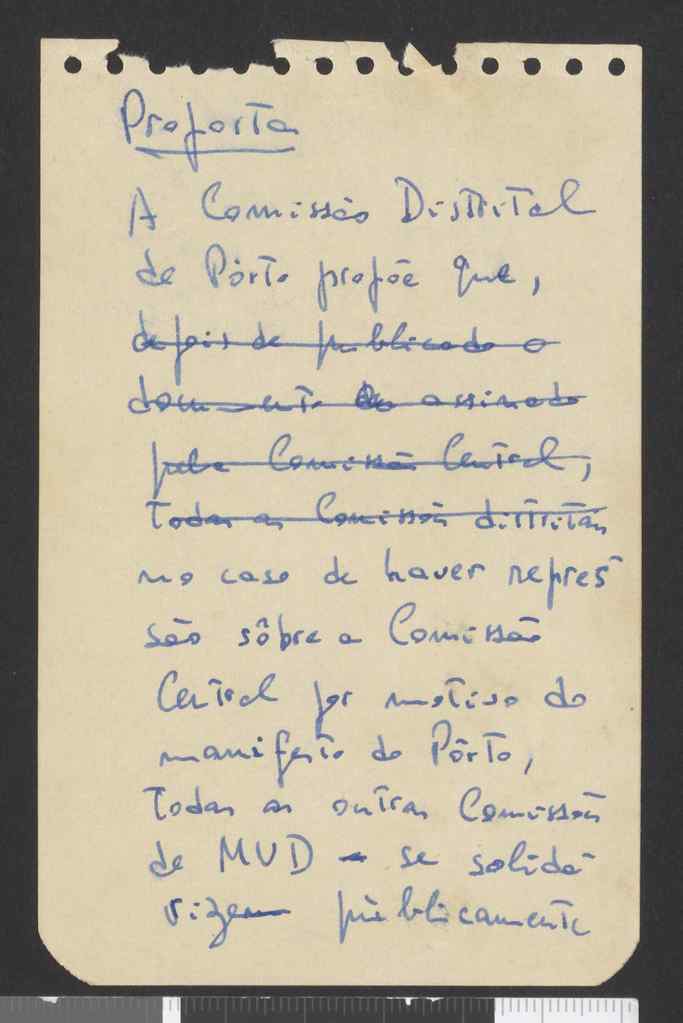 Proposta
A Comissão Distrital
do Pôrto propõe que,
depois de publicado o
documento assinado
pela Comissão Central,
todas as Comissões distritais
no caso de haver repres-
são sôbre a Comissão
Central por motivo do
manifesto do Pôrto,
todas as outras Comissões
de MUD se solida-
rizem pùblicamente